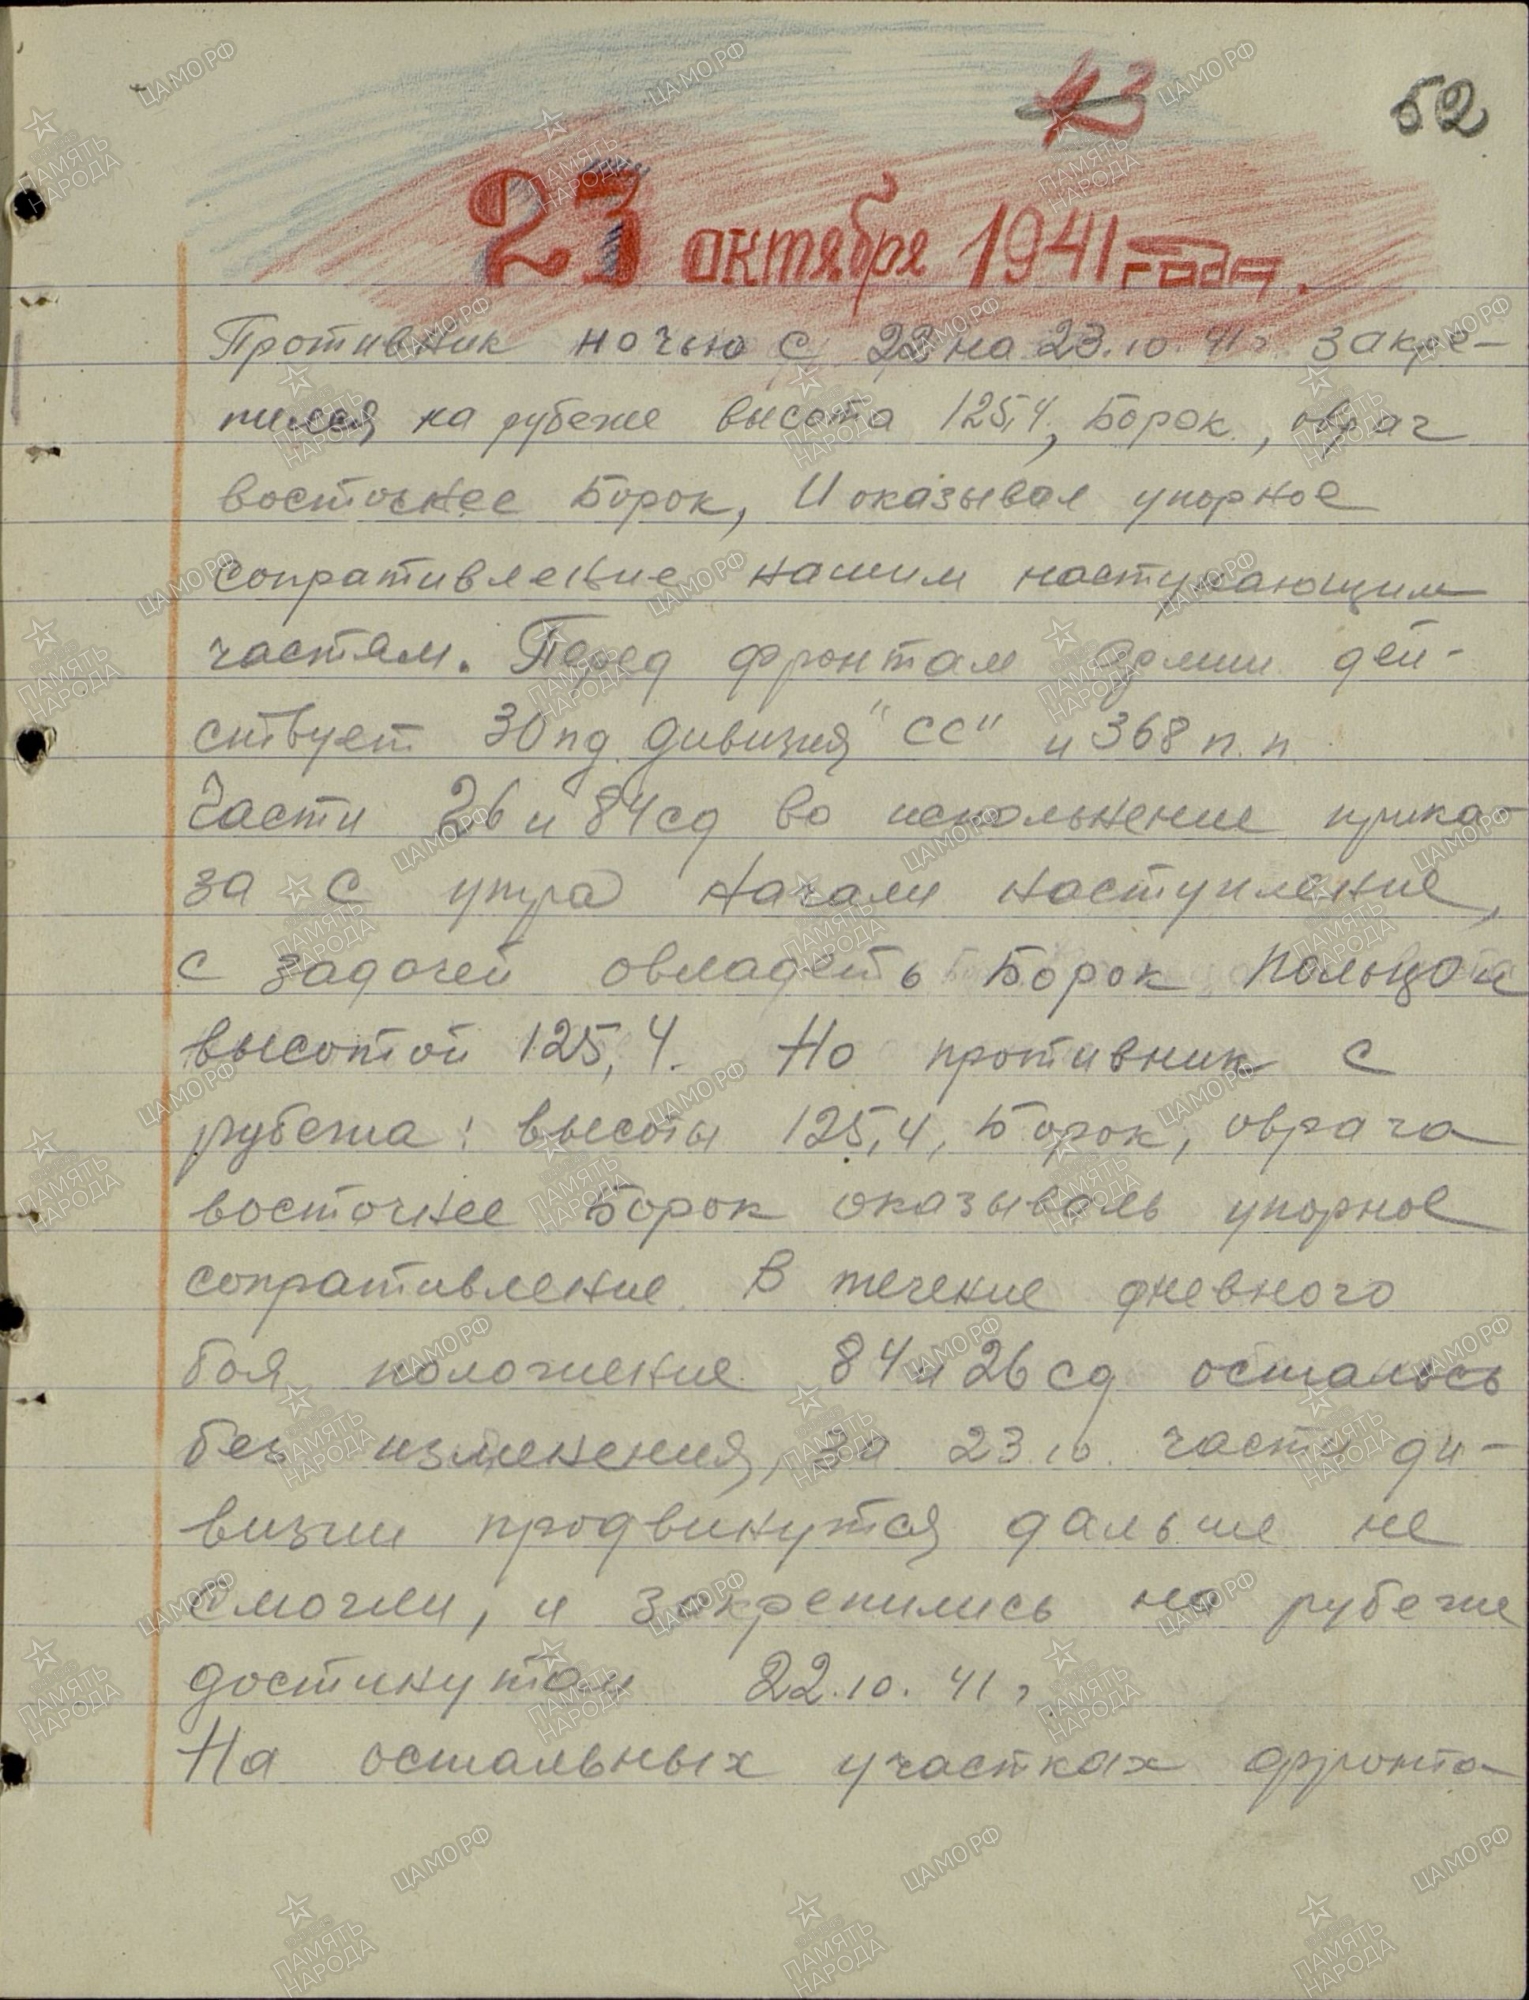 43
52
23 октября 1941 года.
Противник ночью с 22 на 23.10.41г. закре-
пился на рубеже высота 125,4, Борок, овраг
восточнее Борок, и оказывал упорное
сопративление нашим наступающим
частям. Перед фронтам Армии дей-
ствует 30 пд дивизия "СС" и 368 п.п.
Части 26 и 84 сд во исполнение прика-
за с утра начали наступление,
с задачей овладеть Борок Польцой
высотой 125,4. Но противник с
рубежа: высоты 125,4, Борок, оврага
восточнее Борок оказываль упорное
сопративление. В течение дневного
боя положение 84 и 26 сд осталось
без изменения, за 23.10. части ди-
визии продвинутся дальше не
смогли, и закрепились на рубеже
достинутам 22.10.41г
На остальных участках фронта
ЦАМО.РФ
ПАМЯТЬ НАРОДА